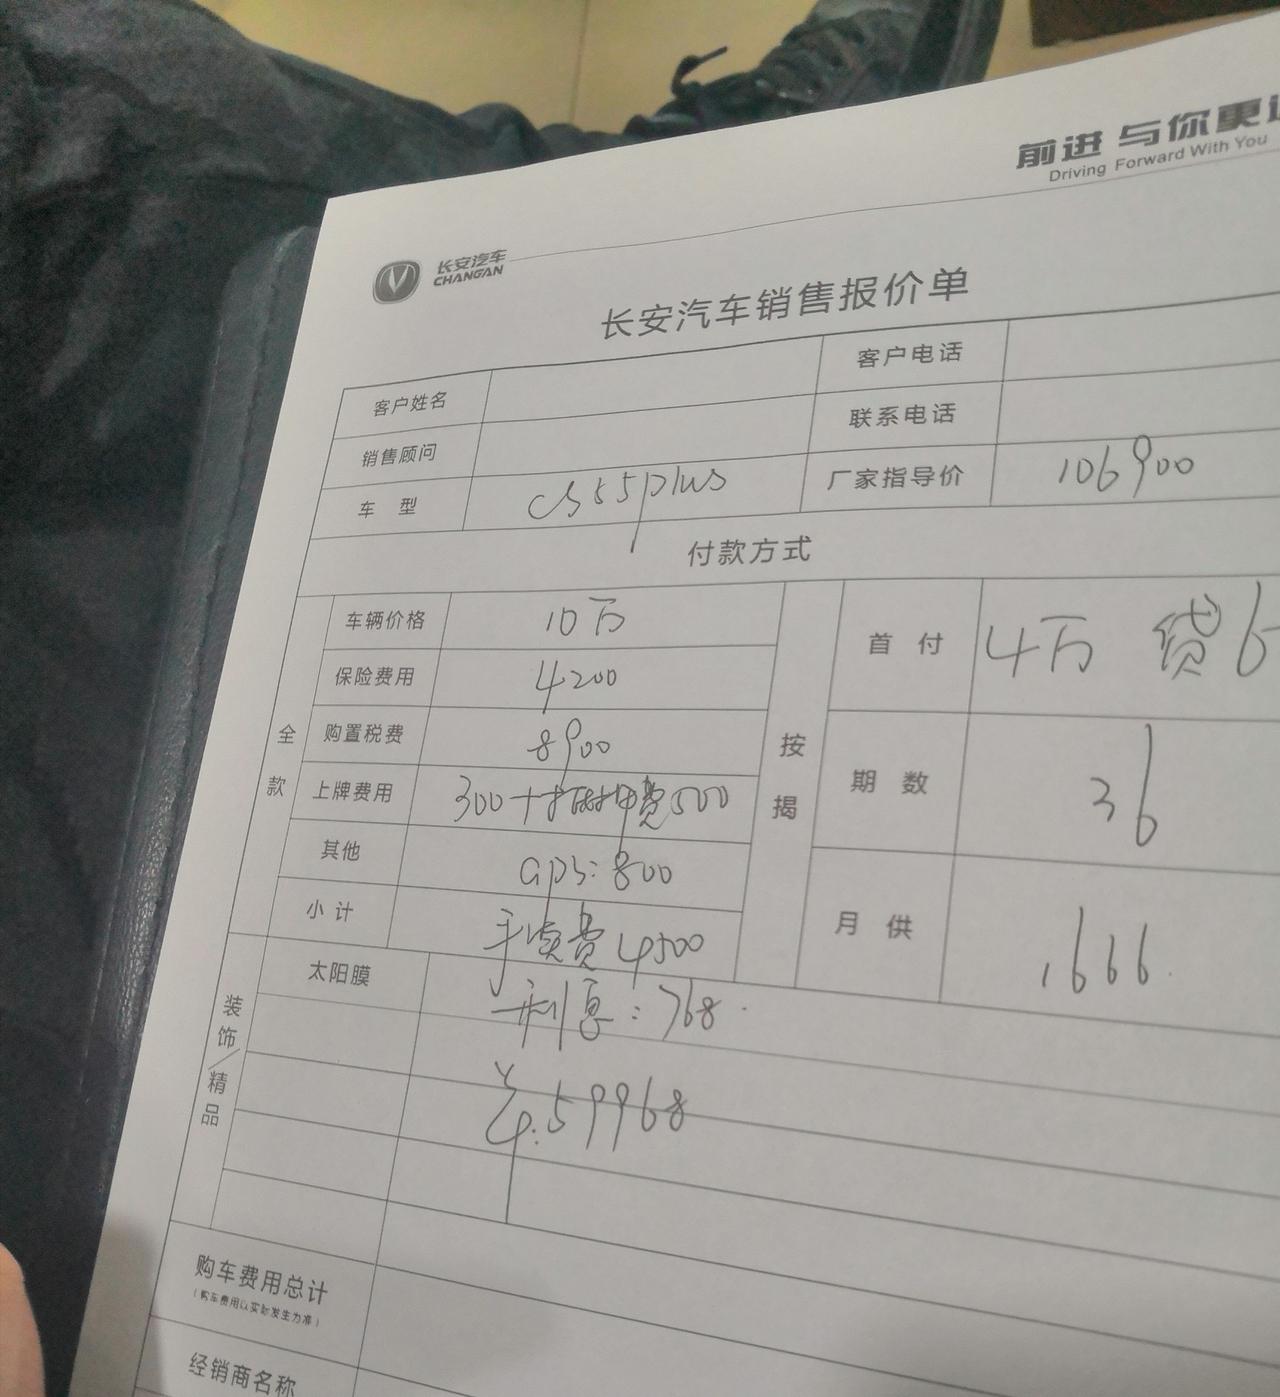 前进 与你更
Driving Forward With You
长安汽车
CHANGAN
长安汽车销售报价单
客户姓名
客户电话
销售顾问
联系电话
车 型 cs55plus 厂家指导价 106900
付款方式
全款
车辆价格 10万
保险费用 4200
购置税费 8900
上牌费用 300+抵押费500
其他 GPS:800
小计 手续费4500
利息:768
按揭
首 付 4万 贷6
期 数 36
月 供 1666
装饰/精品
太阳膜
59968
购车费用总计
(购车费用以实际发生为准)
经销商名称